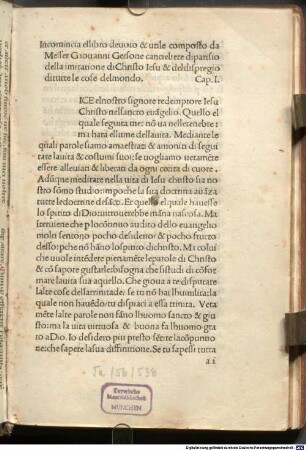 Incomincia ellibro deuoto & utile composto da
Messer Giouanni Gersone cancelliere diparisio
della imitatione di Christo Iesu & deldispregio
ditutte le cose delmondo. Cap. I.
ICE elnostro signore redemptore Iesu
Christo nelsancto euāgelio. Quello el
quale seguita me: nō ua nelle tenebre:
ma hara ellume dellauita. Mediante le
quali parole siamo amaestrati & amonio di seguī
tare lauita & costumi suoi: se uogliamo ueramēte
essere alleuiati & liberati da ogni cecita di cuore.
Adūque meditare nella uita di Iesu christo sia no
stro sōmo studio: impoche la sua doctrina auāza
tutte le doctrine de sācti. Et quello el quale hauesse
lo spirito di Dio: uitrouerrebbe māna nascosa. Ma
interuiene che p locōtinuo audito dello euangelio
molti sentono pocho desiderio: & pocho fructo
desso: pche nō hāno lo spirito dichristo. Ma colui
che uuole intēdere pienamēte leparole di Christo
& cō sapore gustarle: bisogna che sistudi di cōfor
mare lauita sua aquello. Che gioua a te disputare
lalte cose dellatrinitade: se tu nō hai lhumilita: la
quale non hauēdo: tu dispiaci a essa trinita. Vera
mēte lalte parole non fāno lhuomo sancto & giu
sto: ma la uita uirtuosa & buona fa lhuomo grato
a Dio. Io desidero piu presto sētire la cōpuncti
one: che sapere la sua diffinitione. Se tu sapessi tutta
a i.
Bayerische
Staatsbibliothek
MÜNCHEN